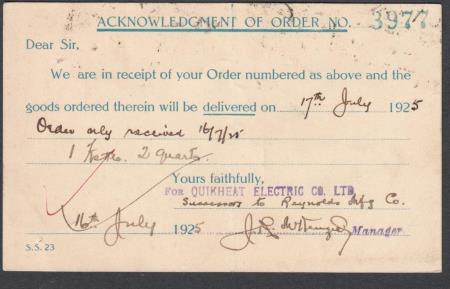 ACKNOWLEDGMENT OF ORDER NO. 3977
Dear Sir,
We are in receipt of your Order numbered as above and the
goods ordered therein will be delivered on 17th July 1925
Order only received 16/7/25
1 Kettle. 2 quarts.
Yours faithfully,
For QUIKHEAT ELECTRIC CO. LTD
Successors to Reynolds Mfg Co.
16th July 1925
Manager
S.S. 23